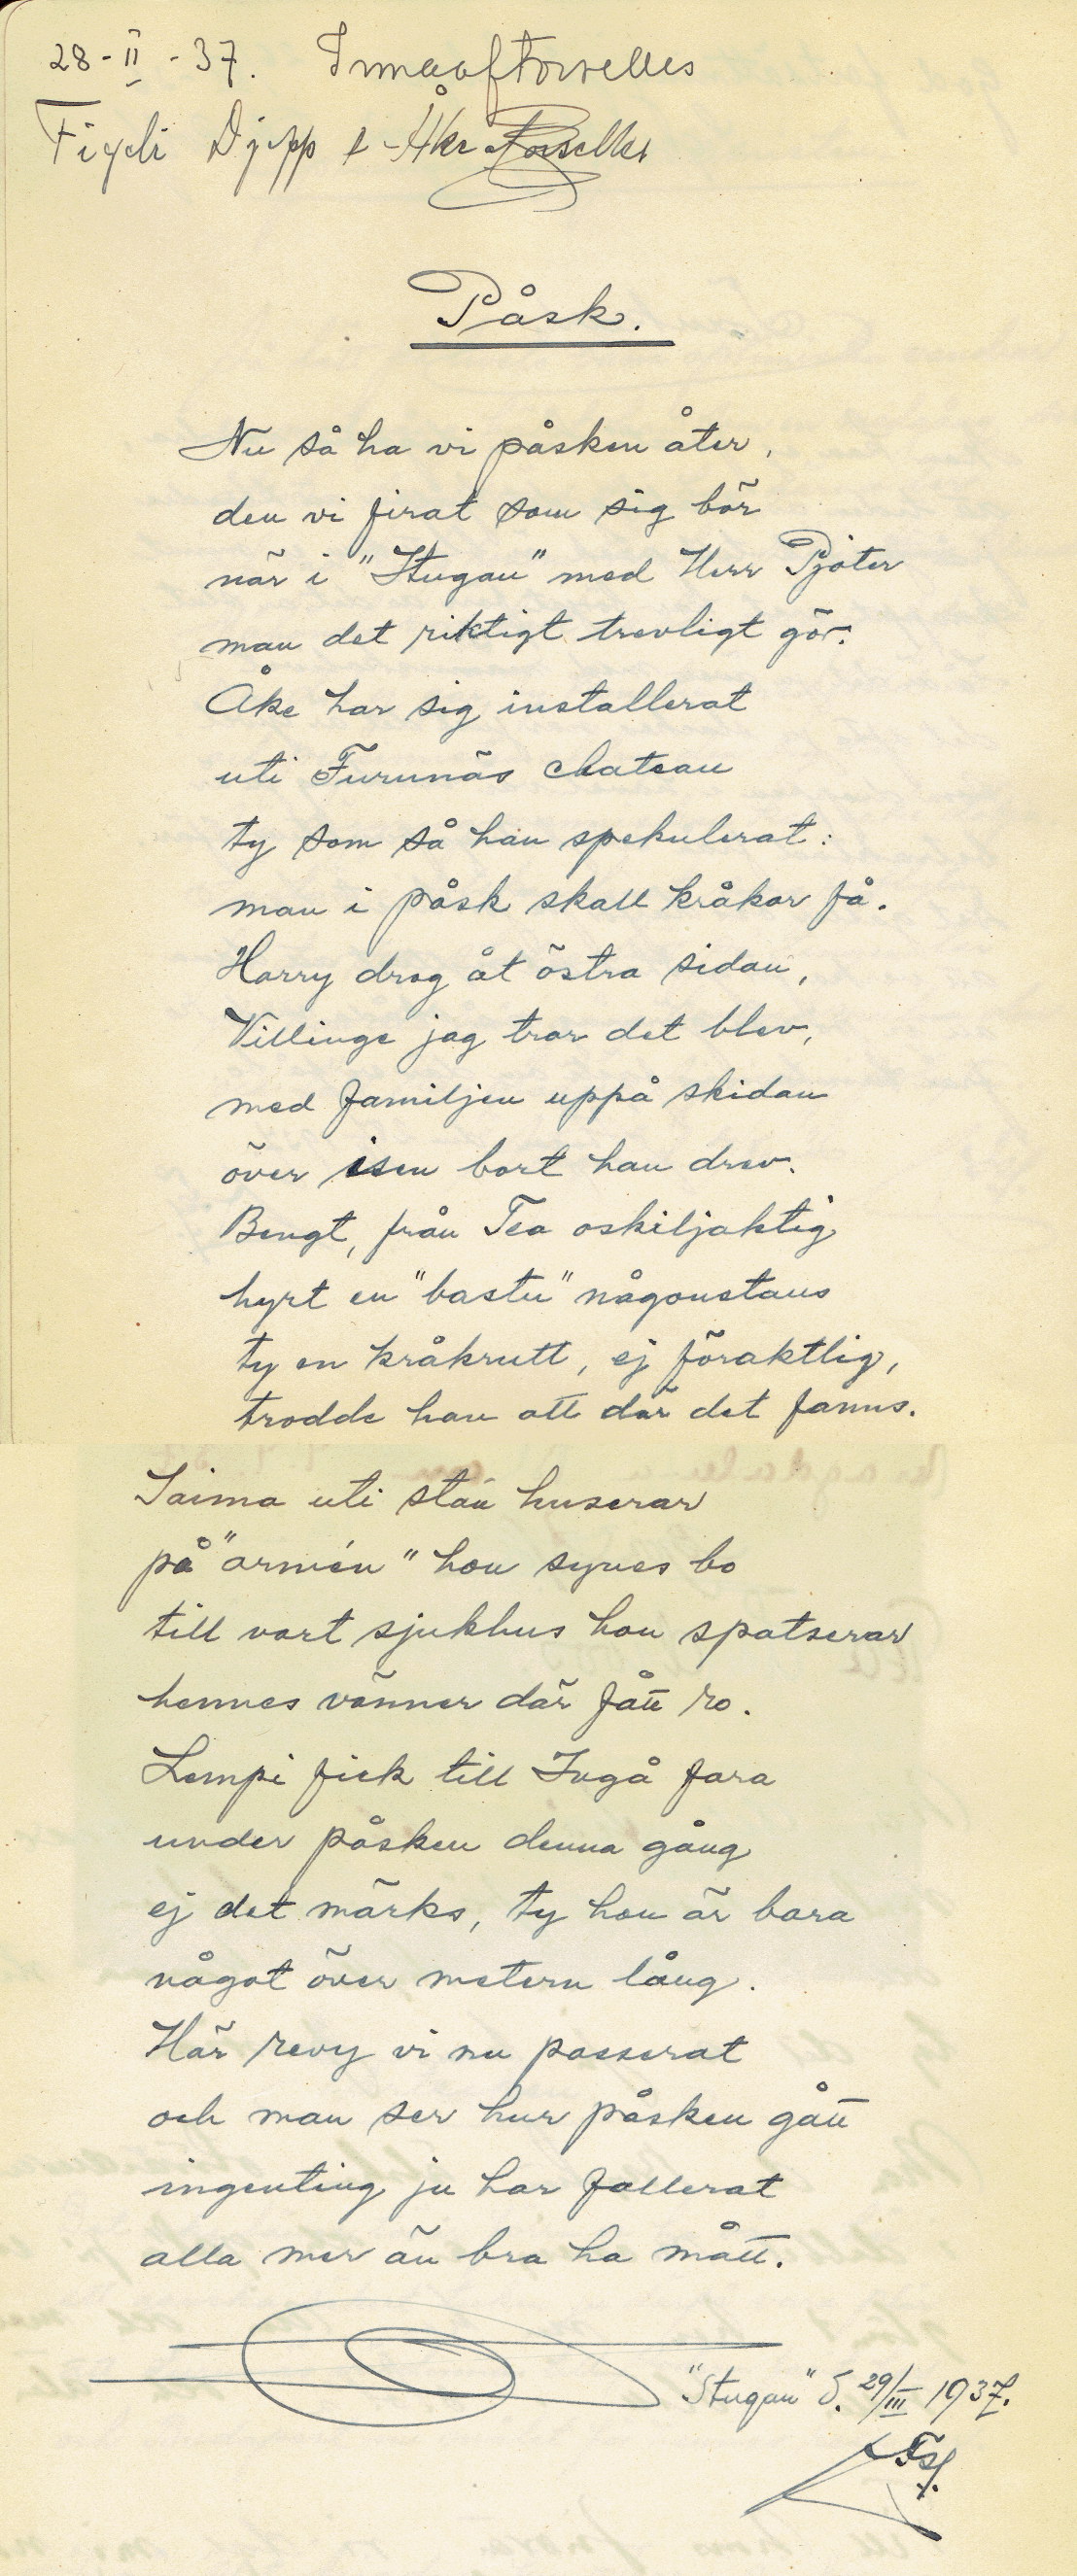 28-II-37.
Åke
Påsk.
Nu så ha vi påsken åter,
den vi firat som sig bör
när i "Stugan" med Herr Pjåter
man det riktigt trevligt gör.
Åke har sig installerat
uti Furunäs chateau
ty som så han spekulerat:
man i påsk skall kråkor få.
Harry drog åt östra sidan,
Villinge jag tror det blev,
med familjen uppå skidan
över isen bort han drev.
Bengt, från Tea oskiljaktig
hyrt en "bastu" någonstans
ty en kråkrutt, ej föraktlig,
trodde han att där det fanns.
Saima uti stan huserar
på "armén" hon synes bo
till vart sjukhus hon spatserar
hennes vänner där fått ro.
Lempi fick till Ingå fara
under påsken denna gång
ej det märks, ty hon är bara
något över metern lång.
Här revy vi nu passerat
och man ser hur påsken gått
ingenting ju har fallerat
alla mer än bra ha mått.
"Stugan" d. 29/III 1937.